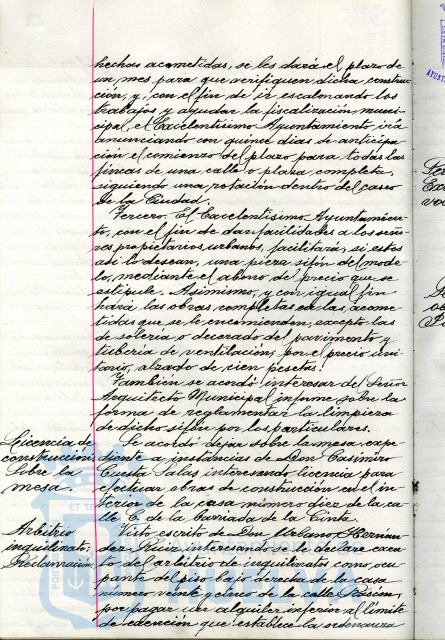 hechas acometidas, se les dará el plazo de
un mes para que verifiquen dicha construc-
ción, y, con el fin de ir escalonando los
trabajos y ayudar la fiscalización muni-
cipal, el Excelentísimo Ayuntamiento irá
anunciando con quince días de anticipa-
ción el comienzo del plazo para todas las
fincas de una calle o plaza completa,
siguiendo una rotación dentro del casco
de la Ciudad.
Tercero. El Excelentísimo Ayuntamien-
to, con el fin de dar facilidades a los seño-
res propietarios urbanos, facilitará, si estos
así lo desean, una pieza sifón del mode-
lo, mediante el abono de precio que se
estipule. Asimismo, y con igual fin
hará las obras completas en las acome-
tidas que se le encomienden, excepto las
de solería o decorado del pavimento y
tubería de ventilación, por el precio uni-
tario, alzado de cien pesetas.
También se acordó interesar del Señor
Arquitecto Municipal informe sobre la
forma de reglamentar la limpieza
de dicho sifón por los particulares.
Licencia de
construcción
sobre la
mesa.
Se acordó dejar sobre la mesa expe-
diente a instancias de Don Casimiro
Cuesta Salas interesando licencia para
efectuar obras de construcción en el in-
terior de la casa número diez de la ca-
lle C. de la Barriada de la Cinta.
Arbitrio
inquilinato:
Reclamación.
Visto escrito de Don Urbano Hernán-
dez Ruiz interesando se le declare exen-
to del arbitrio de inquilinatos como ocu-
pante del piso bajo derecha de la casa
número veinte y cinco de la calle Rascón,
por pagar un alquiler inferior al límite
de exención que establece la ordenanza